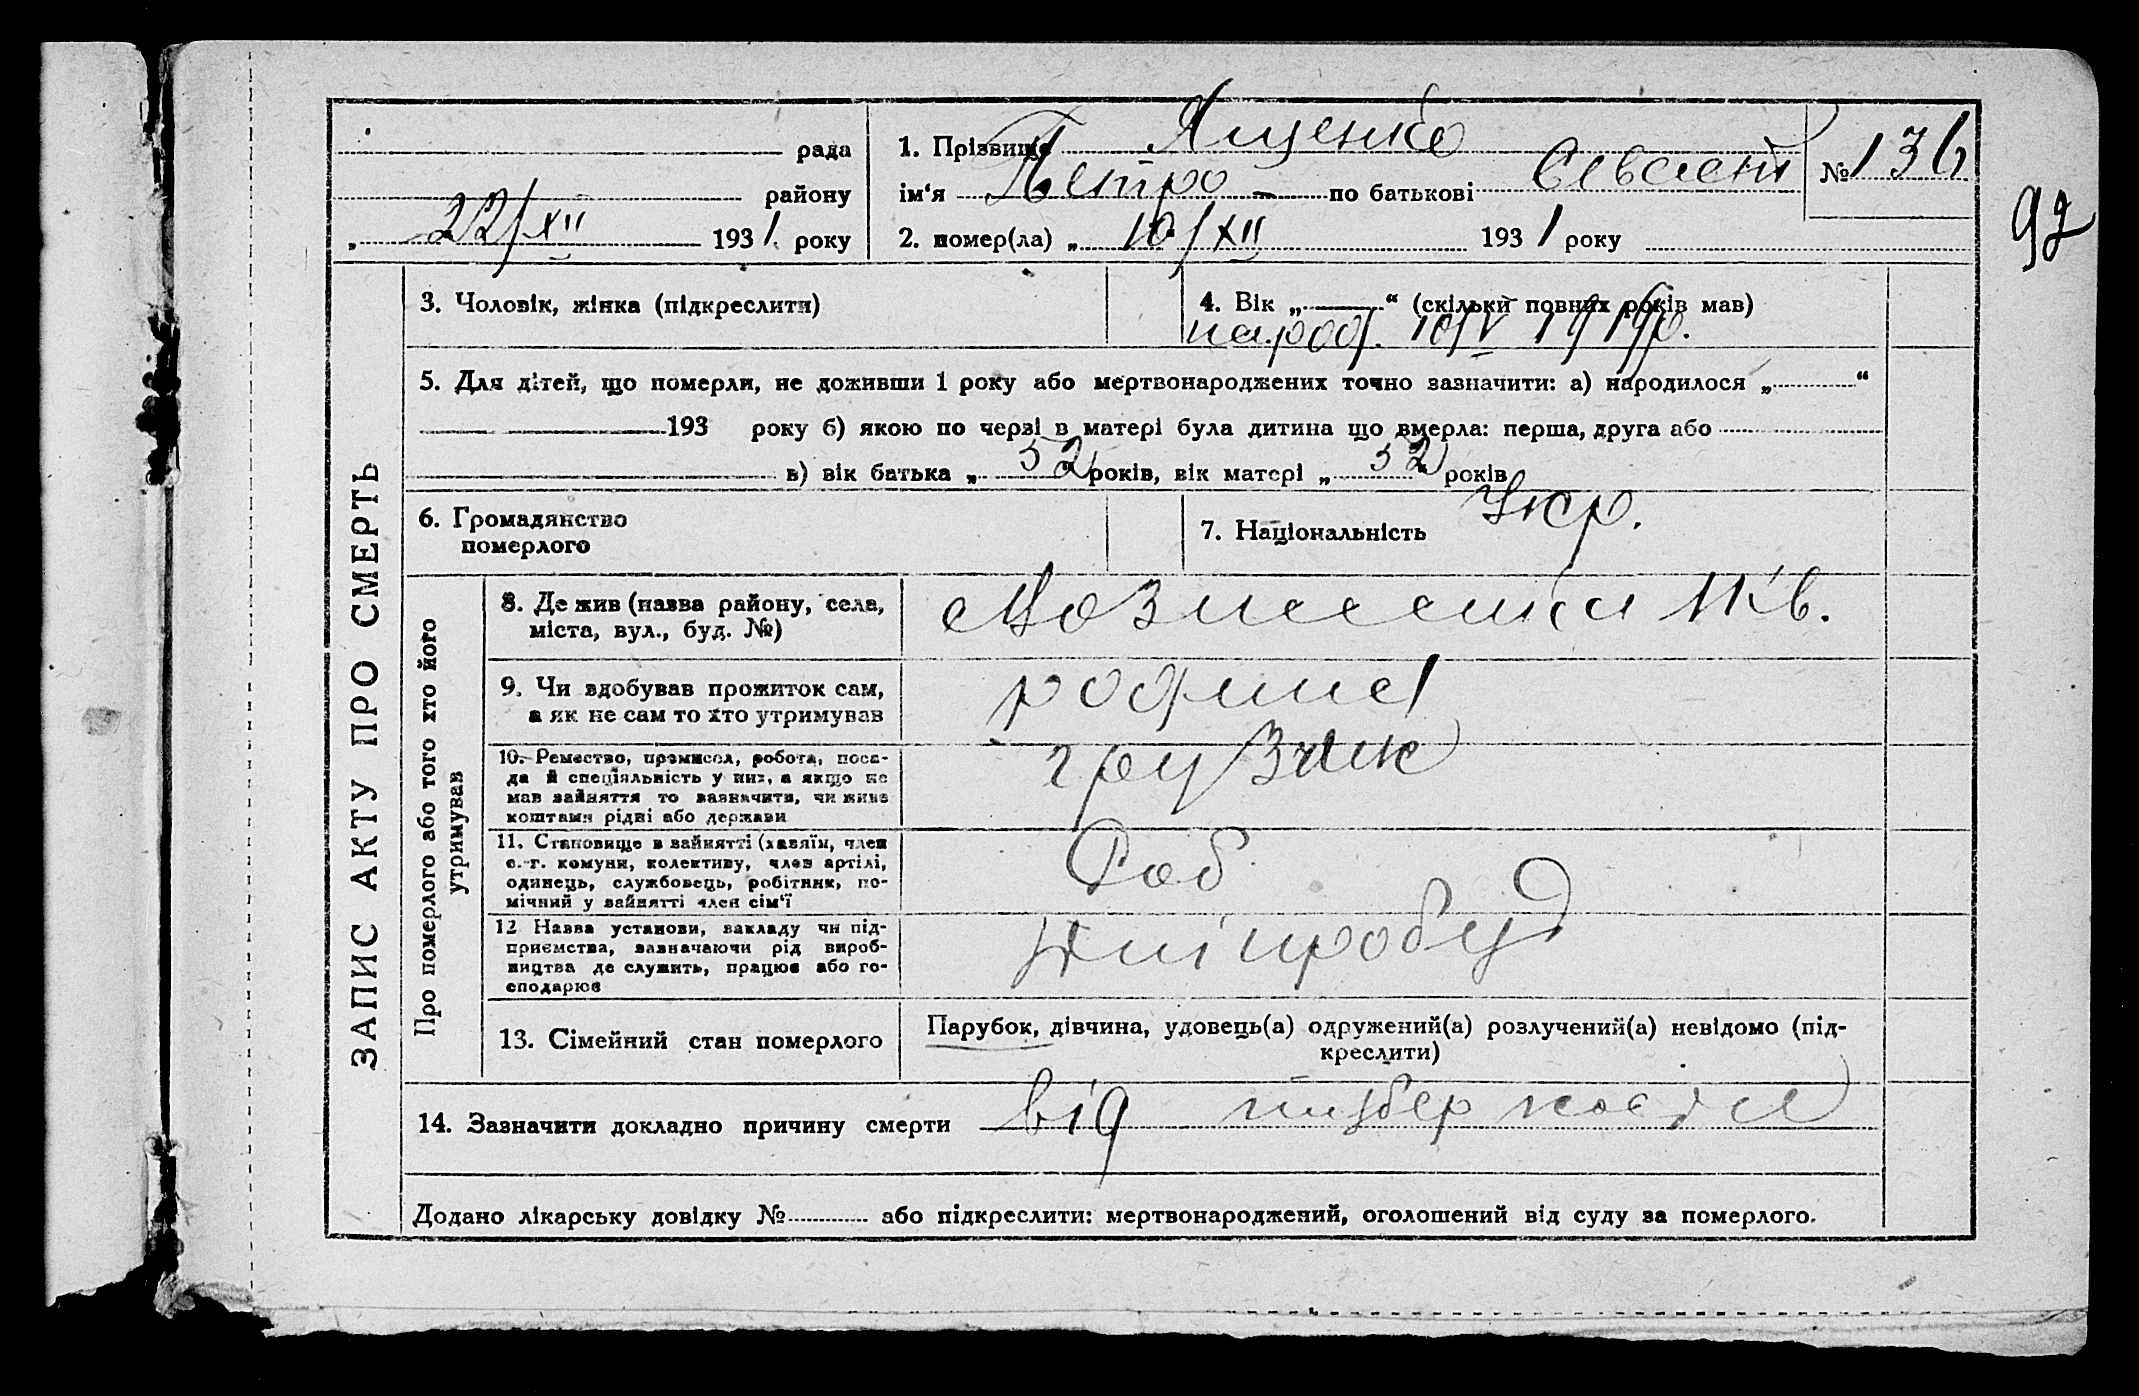 рада
району
„ 22/XII 1931. року
1. Прізвище Ященко
ім'я Петро по батькові
2. помер(ла) „ 10/XII 1931 року
№ 136
92
ЗАПИС АКТУ ПРО СМЕРТЬ
3. Чоловік, жінка (підкреслити)
4. Вік „ “ (скільки повних років мав)
народ. 10/V 1919р.
5. Для дітей, що померли, не доживши 1 року або мертвонароджених точно зазначити: а) народилося „ “
193 року б) якою по черзі в матері була дитина що вмерла: перша, друга або
в) вік батька „ 52 років, вік матері „ 52 “ років
6. Громадянство
померлого
7. Національність Укр.
Про померлого або того хто його
утримував
8. Де жив (назва району, села,
міста, вул., буд. №)
Вознесенка
9. Чи здобував прожиток сам,
а як не сам то хто утримував
родина
10. Ремество, промисел, робота, поса-
да й спеціяльність у них, а якщо не
мав зайняття то зазначити, чи живе
коштами рідні або держави
грузчик
11. Становище в зайнятті (хазяїн, член
с.-г. комуни, колективу, член артілі,
одинець, службовець, робітник, по-
мічний у зайнятті член сім'ї
Роб
12 Назва установи, закладу чи під-
приємства, зазначаючи рід вироб-
ництва де служить, працює або го-
сподарює
Дніпробуд
13. Сімейний стан померлого
Парубок, дівчина, удовець(а) одружений(а) розлучений(а) невідомо (під-
креслити)
14. Зазначити докладно причину смерти від туберкоза
Додано лікарську довідку № або підкреслити: мертвонароджений, оголошений від суду за померлого.